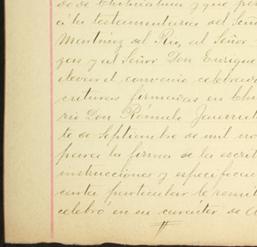 do de Chihuahua y que per
cito testamentarias del Señ
Martínez del Rio, al Señor
gas y al Señor Don Enrique
elevar el convenio celebrado
crituras firmadas en Chi
rio Don Rómulo Jaurriet
te de Septiembre de mil no
para la forma de la escrit
instrucciones y especifica
carta particular le remit
celebró en su carácter de A